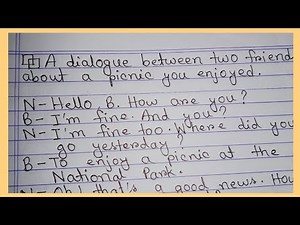 A dialogue between two friend
about a picnic you enjoyed.
N-Hello, B. How are you?
B-I'm fine. And you?
N-I'm fine too. Where did you
go yesterday?
B-To enjoy a picnic at the
National Park.
N-Oh! that's a good news. How